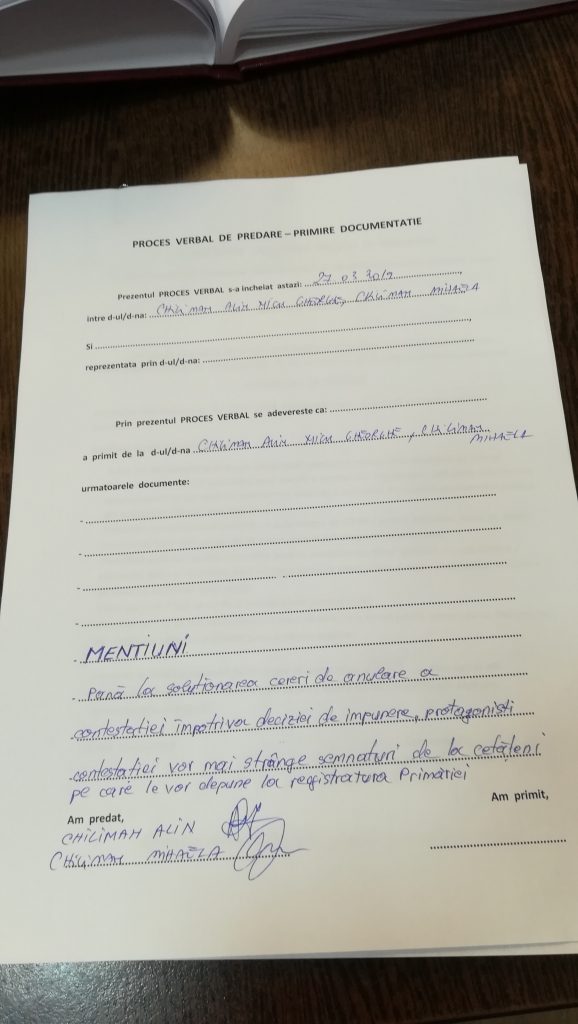 PROCES VERBAL DE PREDARE – PRIMIRE DOCUMENTATIE
Prezentul PROCES VERBAL s-a incheiat astazi: 27 03 2019,
intre d-ul/d-na: CHILIMAN ALIN NICU GHEORGHE, CHILIMAN MIHAELA
Si ,
reprezentata prin d-ul/d-na:
Prin prezentul PROCES VERBAL se adevereste ca:
a primit de la d-ul/d-na CHILIMAN ALIN NICU GHEORGHE, CHILIMAN
MIHAELA
urmatoarele documente:
-
-
-
-
- MENTIUNI
- Până la soluționarea cereri de anulare a
contestatiei împotriva deciziei de impunere, protagoniști
contestației vor mai strânge semnaturi de la cetățeni
pe care le vor depune la registratura Primăriei
Am predat,
Am primit,
CHILIMAN ALIN
CHILIMAN MIHAELA